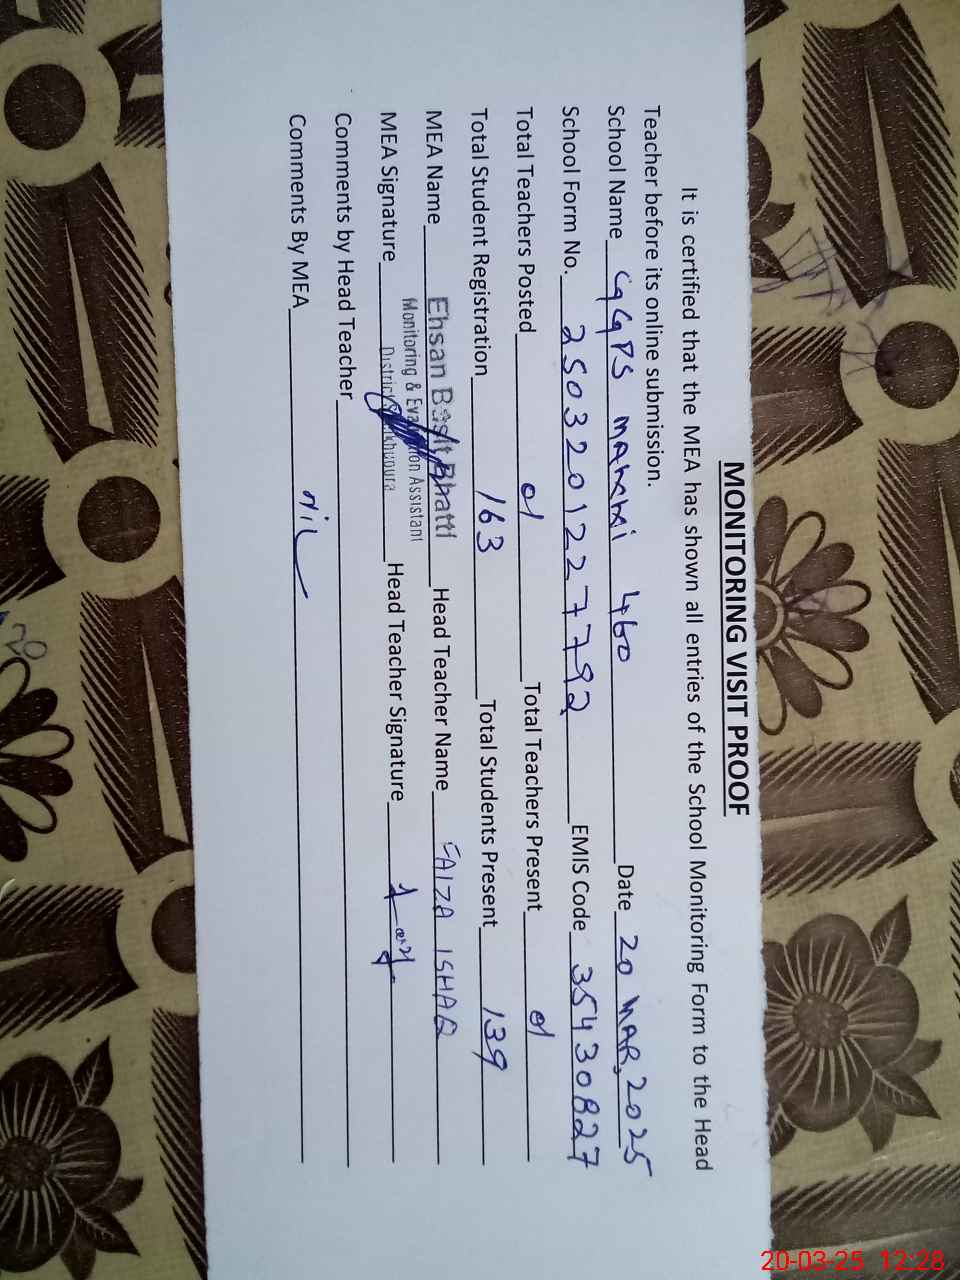 MONITORING VISIT PROOF
It is certified that the MEA has shown all entries of the School Monitoring Form to the Head
Teacher before its online submission.
School Name GGPS MANMI 460 Date 20 MAR, 2025
School Form No. 2503201227792 EMIS Code 35430827
Total Teachers Posted 01 Total Teachers Present 01
Total Student Registration 163 Total Students Present 139
MEA Name Ehsan Basit Bhatti Head Teacher Name FAIZA ISHAQ
Monitoring & Evaluation Assistant
MEA Signature District Sheikhupura Head Teacher Signature
Comments by Head Teacher
Comments By MEA Nil
20-03-25 12:28